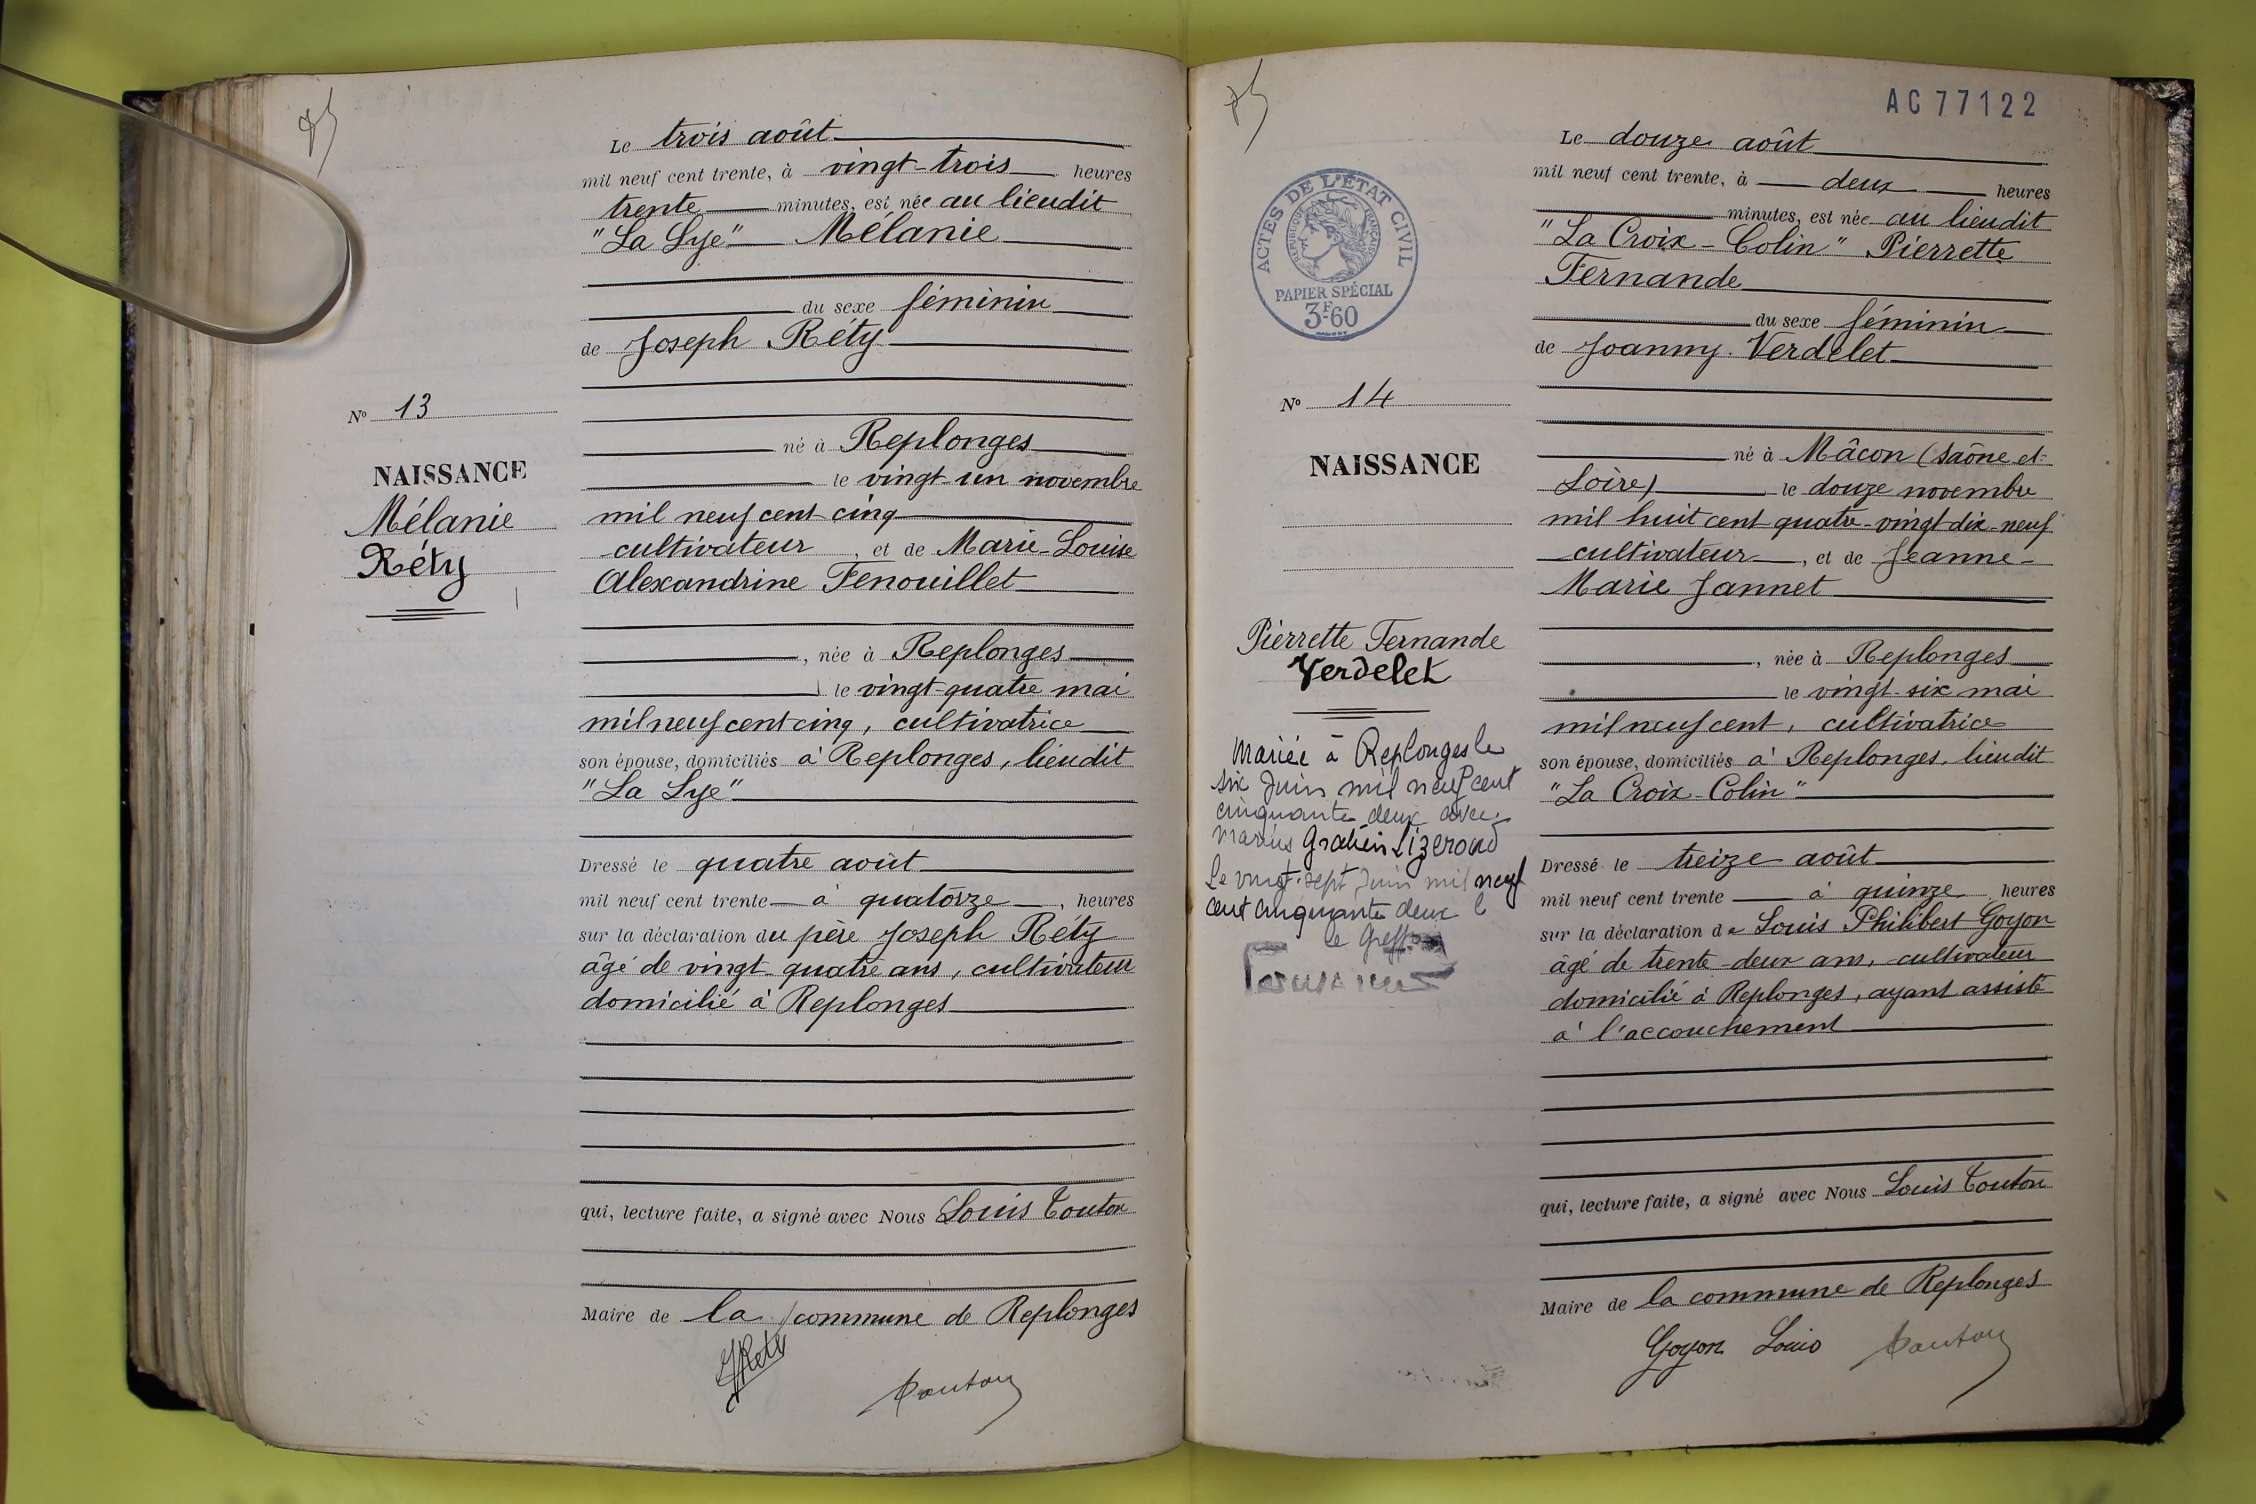 Le trois août
mil neuf cent trente, à vingt-trois heures
trente minutes, est née au lieudit
"La Lye" Mélanie
du sexe féminin
de Joseph Réty
né à Replonges
le vingt-un novembre
mil neuf cent cinq
cultivateur, et de Marie-Louise
Alexandrine Fenouillet
, née à Replonges
le vingt-quatre mai
mil neuf cent cinq, cultivatrice
son épouse, domiciliés à Replonges, lieudit
"La Lye"
Dressé le quatre août
mil neuf cent trente à quatorze, heures
sur la déclaration du père Joseph Réty
âgé de vingt-quatre ans, cultivateur
domicilié à Replonges
qui, lecture faite, a signé avec Nous Louis Touton
Maire de la commune de Replonges
JRety
Touton
No 13
NAISSANCE
Mélanie
Réty
AC 77122
Le douze août
mil neuf cent trente, à deux heures
minutes, est née au lieudit
"La Croix-Colin" Pierrette
Fernande
du sexe féminin
de Joanny Verdelet
né à Mâcon (Saône-et-
Loire) le douze novembre
mil huit cent quatre-vingt-dix-neuf
cultivateur, et de Jeanne-
Marie Jannet
, née à Replonges
le vingt-six mai
mil neuf cent, cultivatrice
son épouse, domiciliés à Replonges, lieudit
"La Croix-Colin"
Dressé le treize août
mil neuf cent trente à quinze heures
sur la déclaration de Louis Philibert Goyon
âgé de trente-deux ans, cultivateur
domicilié à Replonges, ayant assisté
à l'accouchement
qui, lecture faite, a signé avec Nous Louis Touton
Maire de la commune de Replonges
Goyon Louis Touton
ACTES DE L'ÉTAT CIVIL
RÉPUBLIQUE FRANÇAISE
PAPIER SPÉCIAL
3F60
No 14
NAISSANCE
Pierrette Fernande
Verdelet
Mariée à Replonges le
six Juin mil neuf cent
cinquante deux avec
Marius Gratien Lizeroud
Le vingt-sept Juin mil neuf
cent cinquante deux
le Greffier